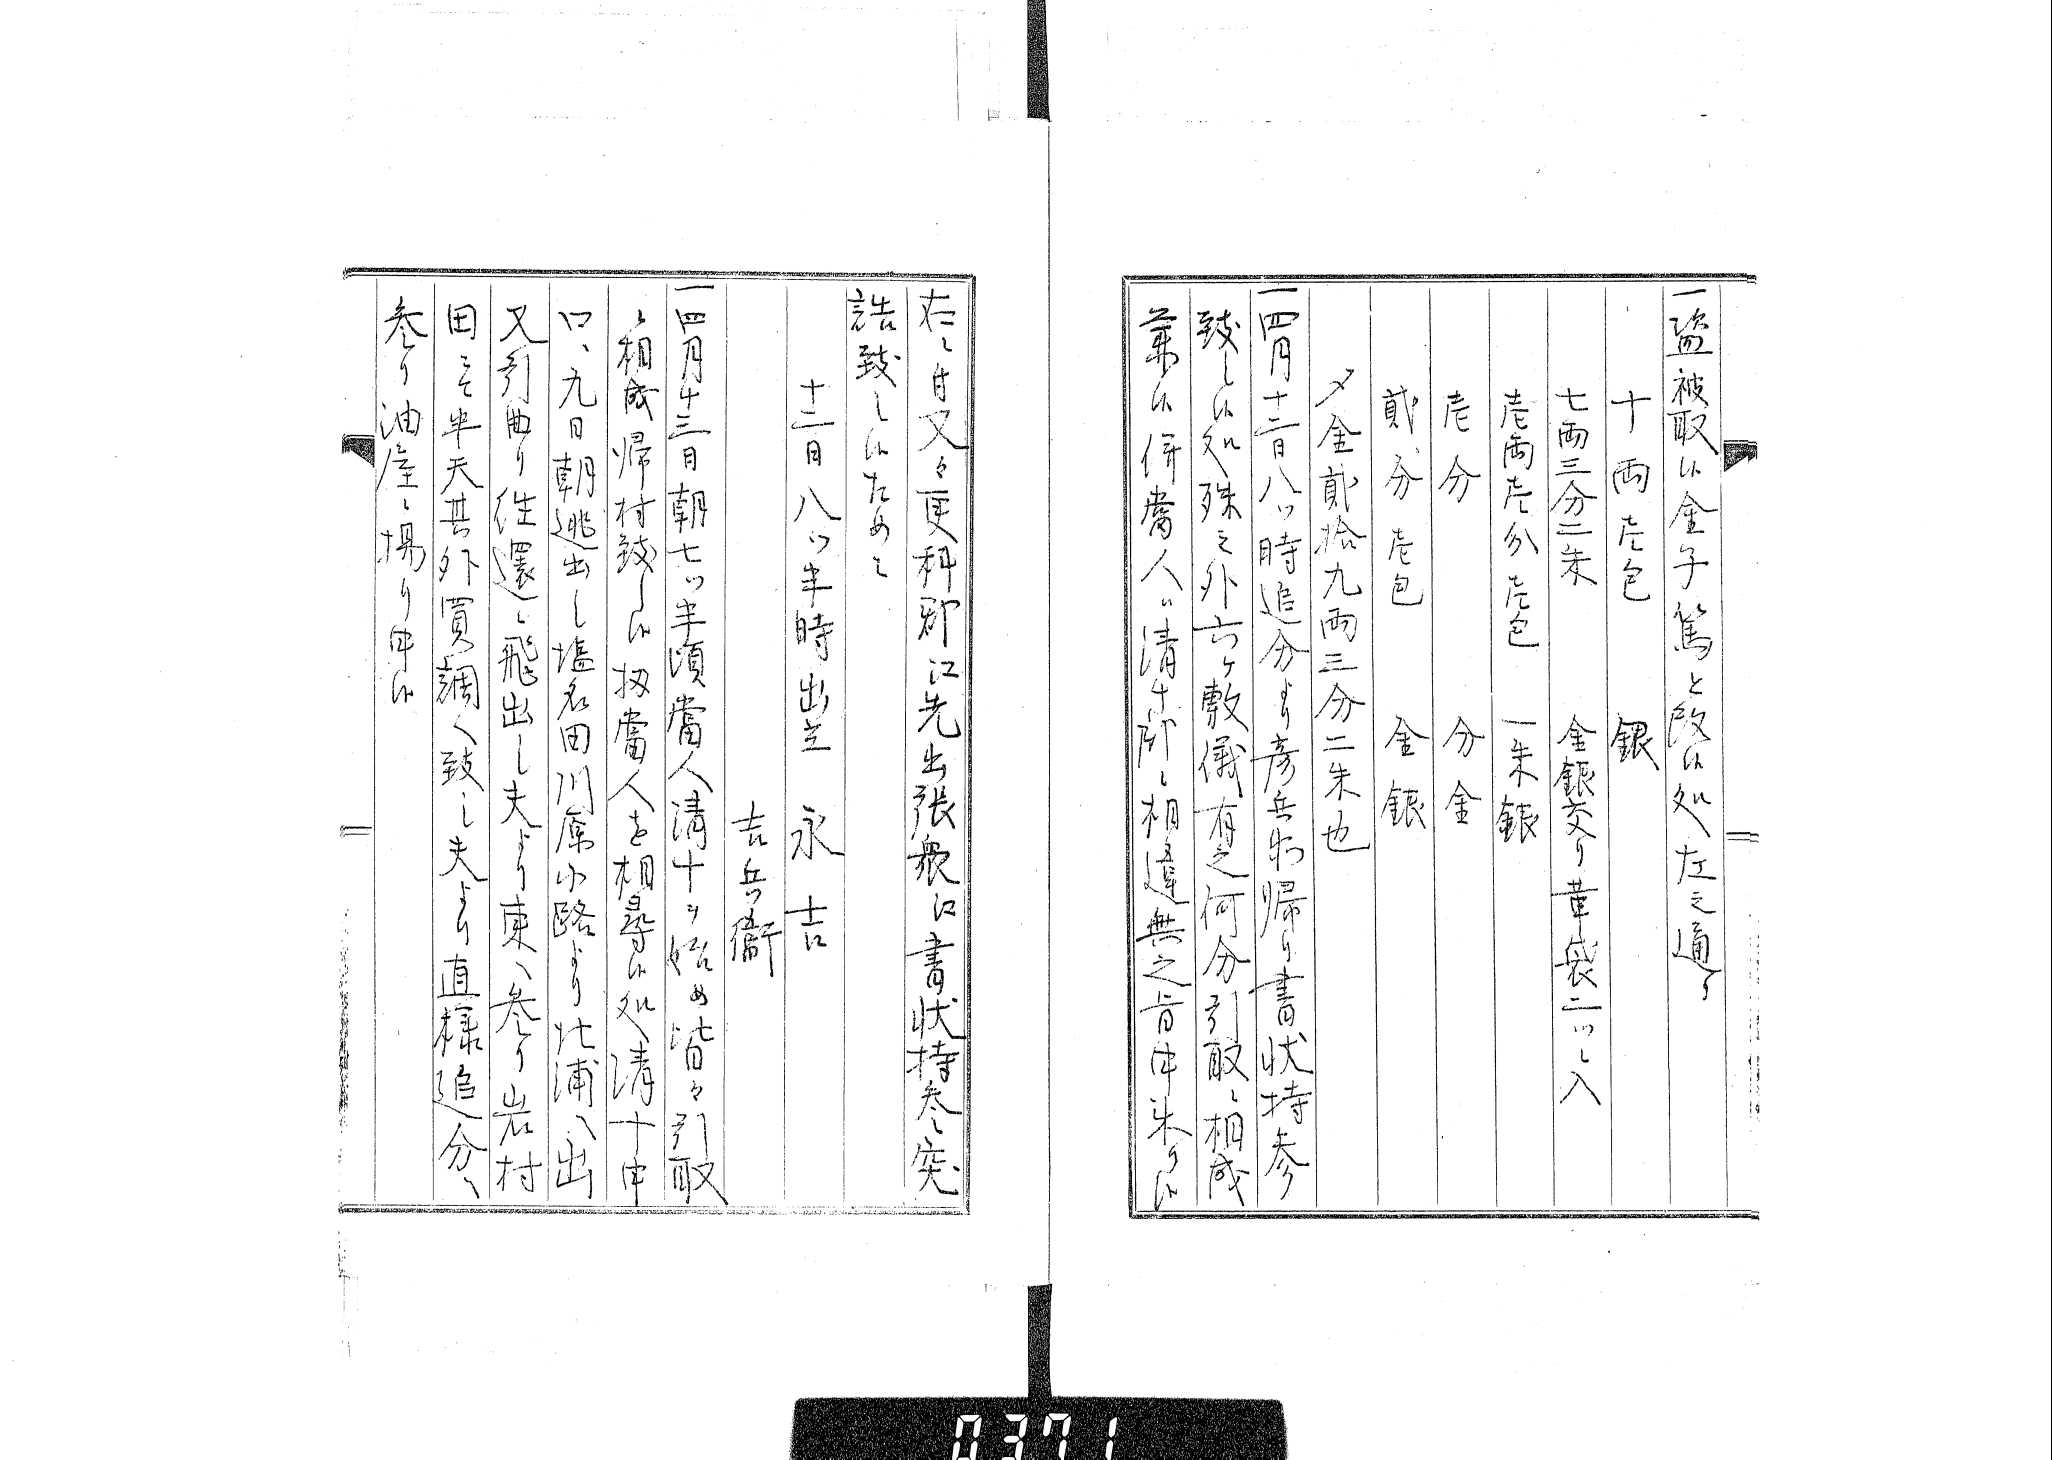 一盗被取候金子篤と改候処左之通り
十両壱包 銀
七両三分二朱 金銀交り革袋二ツニ入
壱両壱分壱包 一朱銀
壱分 分金
貳分壱包 金銀
〆金貳拾九両三分二朱也
一四月十二日八ツ時追分より彦兵衛帰り書状持参
致し候処殊之外六ヶ敷儀有之何分引取ニ相成
兼候併当人ハ清十郎ニ相違無之旨申来り候
右ニ付又々更科郡江先出張衆江書状持参ニ突
詰致し候ために
十二日八ツ半時出立 永吉
吉兵衛
一四月十三日朝七ツ半頃當人清十ヲ始め皆々引取
ニ相成帰村致し候扨當人を相尋候処清十申
口、九日朝逃出し塩名田川原小路より北浦へ出
又引曲り往還ニ飛出し夫より東へ参り岩村
田ニて半天其外買調へ致し夫より直様追分へ
参り油屋ニ揚り申候
0371